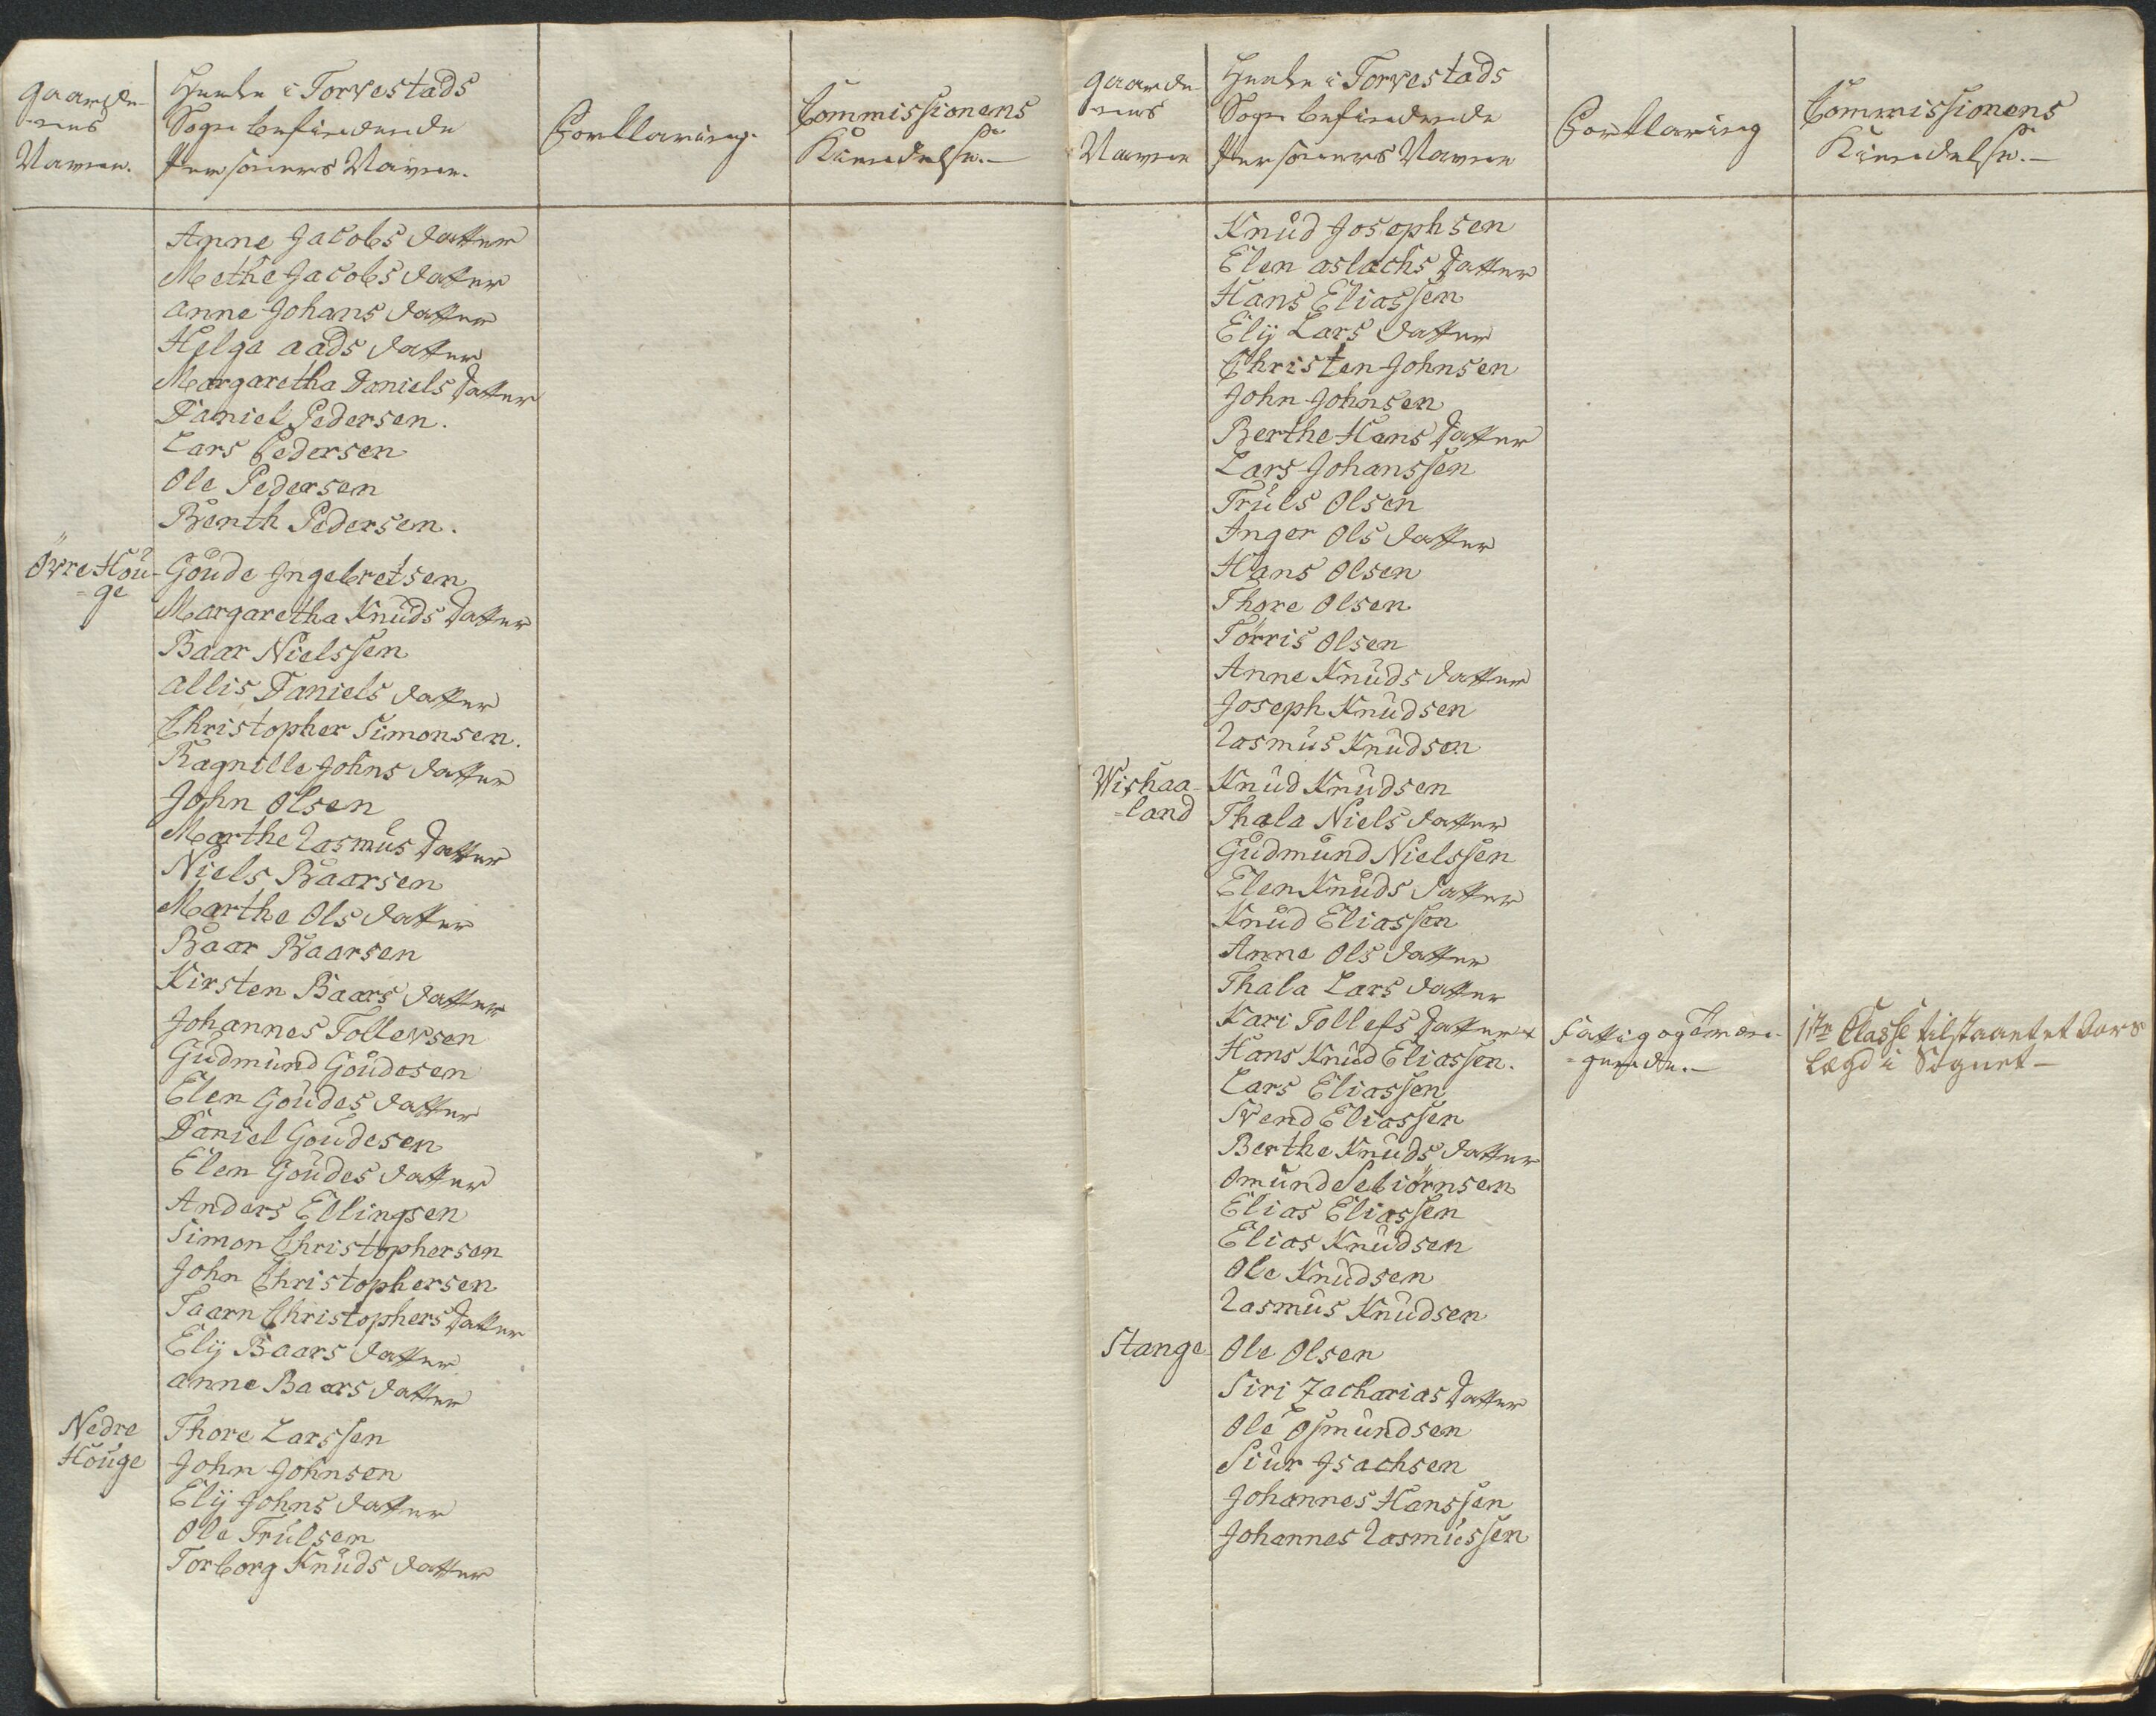 Gaarde-
-nes
Navne.
Hvilke i Torvestads
Sogn befindende
Persohners Navne.
Forklaring.
Commissionens
Kiendelse.-
Anne Jacobs datter
Methe Jacobs datter
Anne Johans datter
Helga Aads datter
Margaretha Daniels Datter
Daniel Pedersen.
Lars Pedersen
Ole Pedersen
Benth Pedersen.
Övre Hou-
=ge
Goude Ingebretsen
Margaretha Knuds Datter
Baar Nielssen
Allis Daniels datter
Christopher Simonsen.
Ragnille Johns datter
John Olsen
Marthe Rasmus Datter
Niels Baarsen
Marthe Ols datter
Baar Baarsen
Kirsten Baars datter
Johannes Tollevsen
Gudmund Goudesen
Elen Goudes datter
Daniel Goudesen
Elen Goudes datter
Anders Ellingsen
Simon Christophersen
John Christophersen
Taarn Christophers Datter
Elij Baars datter
Anne Baars datter
Nedre
Houge
Thore Larssen
John Johnsen
Elij Johns datter
Ole Trulsen
Torborg Knuds datter
Gaarde
-nes
Navne
Hvilke i Torvestads
Sogn befindende
Persohners Navne
Forklaring
Commissionens
Kiendelse.-
Knud Josephsen
Elen Aslachs Datter
Hans Eliassen
Elij Lars datter
Christen Johnsen
John Johnsen
Berthe Hans Datter
Lars Johanssen
Truls Olsen
Inger Ols datter
Hans Olsen
Thore Olsen
Törris Olsen
Anne Knuds datter
Joseph Knudsen
Rasmus Knudsen
Wishaa-
=land
Knud Knudsen
Thala Niels datter
Gudmund Nielssen
Elen Knuds datter
Knud Eliassen
Anne Ols datter
Thala Lars datter
Kari Tollefs Datter +
Fattig og Em
=gende.-
1ste Classe tilstaaet et Aars
Lægd i Sognet-
Hans Knud Eliassen.
Lars Eliassen
Svend Eliassen
Berthe Knuds datter
Omund Sebiörnsen
Elias Eliassen
Elias Knudsen
Ole Knudsen
Rasmus Knudsen
Stange
Ole Olsen
Siri Zacharias Datter
Ole Osmundsen
Siur Isachsen
Johannes Hanssen
Johannes Rasmussen